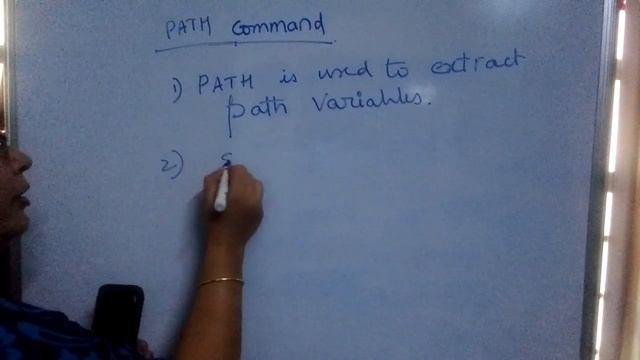 PATH Command
1) PATH is used to extract
path variables.
2) S